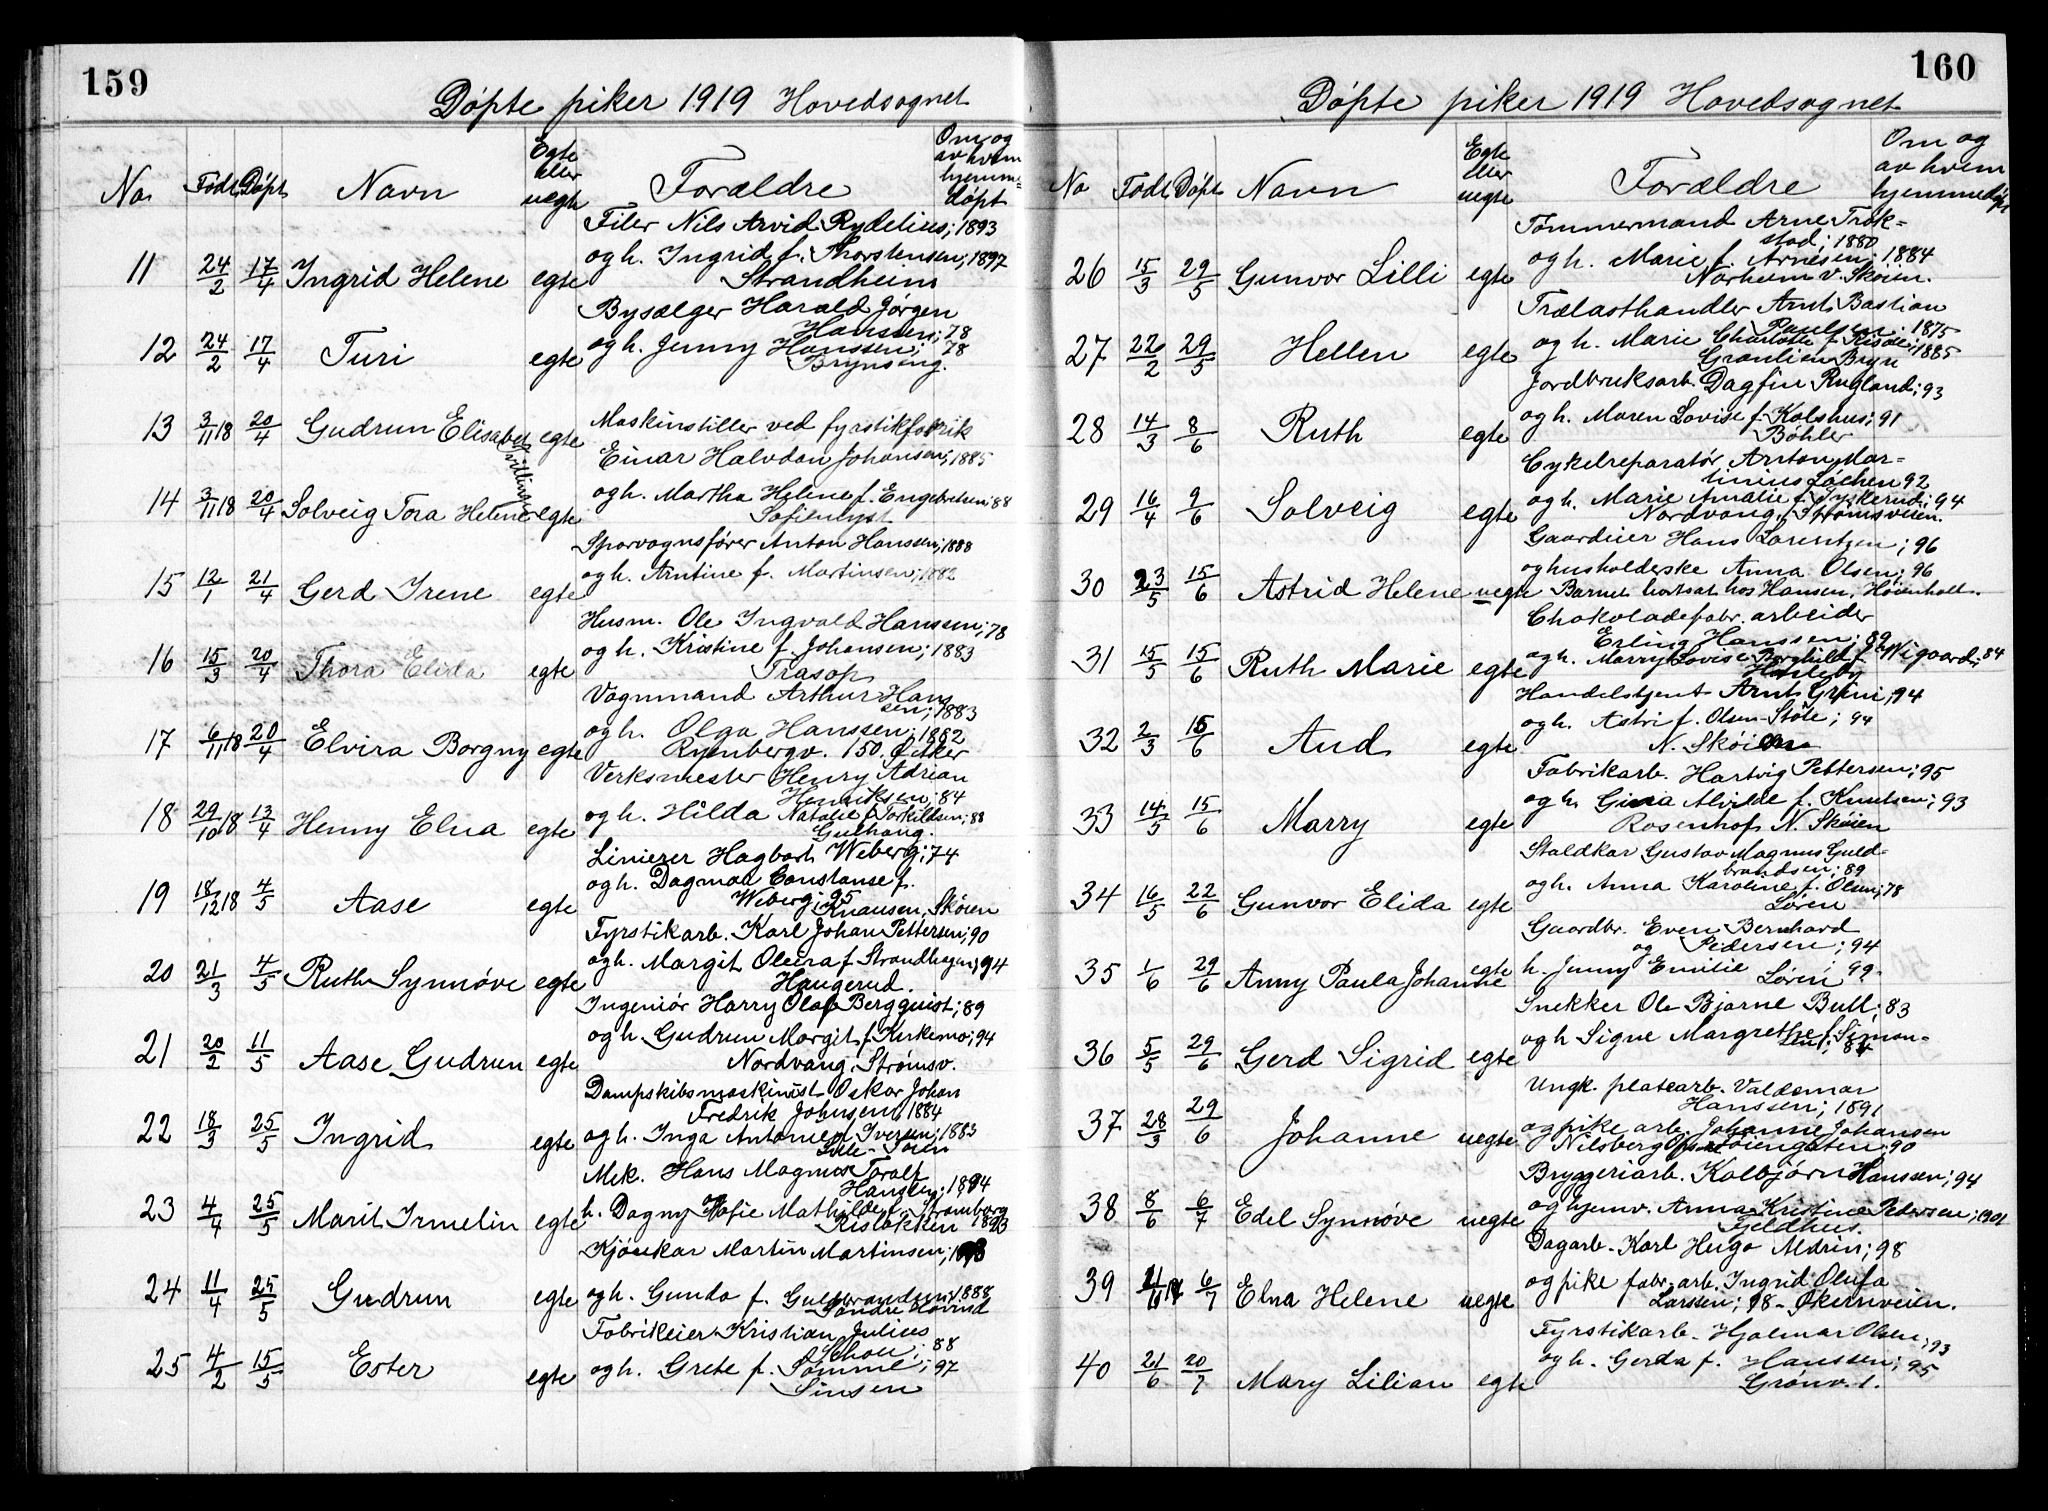 159
Døpte piker 1919 Hovedsognet
No. Født Døpt Navn Egte eller uegte Forældre Om og av hvem hjemmedøpt
Filer Nils Arvid Rydelius; 1893
11 24/2 17/4 Ingrid Helene egte og h. Ingrid f. Thorstensen; 1897
Strandheim
Bysælger Harald Jørgen
Hanssen; 78
12 24/2 17/4 Turi egte og h. Jenny Hanssen; 78
Brynseng.
13 3/11 18 20/4 Gudrun Elisabet egte Maskinstiller ved fyrstikfabrik
Einar Halvdan Johansen; 1885
tvillinger
14 3/11 18 20/4 Solveig Tora Helene egte og h. Martha Helene f. Engebretsen; 88
Sofienlyst
Sporvognsfører Anton Hanssen; 1888
15 12/1 21/4 Gerd Irene egte og h. Arntine f. Martinsen; 1882
Husm. Ole Ingvald Hanssen; 78
16 15/3 20/4 Thora Elida egte og h. Kristine f. Johansen; 1883
Trasop
Vognmand Arthur Hans
sen; 1883
17 6/11 18 20/4 Elvira Borgny egte og h. Olga Hanssen; 1882
Ryenbergv. 150. Ø. Aker
Verksmester Henry Adrian
Henriksen; 84
18 29/10 18 13/4 Henny Elna egte og h. Hilda Natalie f. Torkildsen; 88
Gulhaug.
Linierer Hagbart Weberg; 74
19 18/12 18 4/5 Aase egte og h. Dagmar Constanse f.
Weberg; 95
Knausen, Skøien
Fyrstikarb. Karl Johan Pettersen; 90
20 21/3 4/5 Ruth Synnøve egte og h. Margit Oleira f. Strandhagen; 94
Haugerud.
Ingeniør Harry Olaf Bergquist; 89
21 20/2 11/5 Aase Gudrun egte og h. Gudrun Margit f. Kirkemo; 94
Nordvang, Strømsv.
Dampskibsmaskinist Oskar Johan
Fredrik Johnsen, 1884
22 18/3 25/5 Ingrid egte og h. Inga Antonie f. Iversen; 1883
Lille-Tøien
Mek. Hans Magnus Toralf
Hansen; 1894
23 4/4 25/5 Marit Irmelin egte h. Dagny Sofie Mathilde f. Strømberg
Risløkken 1893
Kjørekar Martin Martinsen;
24 11/4 25/5 Gudrun egte og h. Gunda f. Gulbrandsen; 1888
Søndre Hovind
Fabrikeier Kristian Julius
Schou; 88
25 4/2 15/5 Ester egte og h. Grete f. Sømme; 97
Sinsen
160
Døpte piker 1919 Hovedsognet
No Født Døpt Navn Egte eller uegte Forældre Om og av hvem hjemmedøpt
Tømmermand Arne Trøk-
stad; 1880
26 15/3 29/5 Gunvor Lilli egte og h. Marie f. Arnesen; 1884
Norheim v. Skøien.
Trælasthandler Arnt Bastian
Paulsen; 1875
27 22/2 29/5 Hellen egte og h. Marie Charlotte f. Risøe; 1885
Grønlien Bryn
Jordbruksarb. Dagfin Rugland; 93
28 14/3 8/6 Ruth egte og h. Maren Lovise f. Kolshus; 91
Bøhler
Cykelreparatør Anton Mar-
tinius Løchen 92
29 16/4 9/6 Solveig egte og h. Marie Amalie f. Tyskerud; 94
Nordvang, Strømsveien.
Gaardeier Hans Lorentzen; 96
og husholderske Anna Olsen; 96
30 23/5 15/6 Astrid Helene uegte Barnet bortsat hos Hansen, Høienholt.
Chokoladefabr. arbeider
Erling Hanssen; 89
31 15/5 15/6 Ruth Marie egte og h. Marry Lovise Borghild f. Wigaard; 84
Hasleby
Handelsbetjent Arnt Grini; 94
32 2/3 15/6 Aud egte og h. Astri f. Olsen-Støle; 94
N. Skøien
Fabrikarb. Hartvig Pettersen; 95
33 14/5 15/6 Marry egte og h. Gina Alvilde f. Knutsen; 93
Rosenhof, N. Skøien
Staldkar Gustav Magnus Guld-
brandsen; 89
34 16/5 22/6 Gunvor Elida egte og h. Anna Karoline f. Olsen; 78
Løren
Gaardbr. Even Bernhard
og Pedersen; 94
35 1/6 29/6 Anny Paula Johanne egte h. Jenny Emilie; 99.
Løren
Snekker Ole Bjarne Bull; 83
36 5/5 29/6 Gerd Sigrid egte og h Signe Margrethe f. Simon-
sen; 84
Ungk. platearb. Valdemar
Hanssen; 1891
37 28/3 29/6 Johanne uegte og pike arb. Johanne Johansen
Nilsberg Tøiengaten; 90
Bryggeriarb. Kolbjørn Hanssen; 94
38 8/6 6/7 Edel Synnøve uegte og hjemv. Anna Kristine Pedersen; 1901
Fjeldhus.
Dagarb. Karl Hugo Aldrin; 98
39 6/7 Elna Helene uegte og pike fabr. arb. Ingrid Olufa
Larssen; 98 - Økernveien.
Fyrstikarb. Hjalmar Olsen; 93
40 21/6 20/7 Mary Lilian egte og h. Gerda f. Hanssen; 95
Grønv. 1.